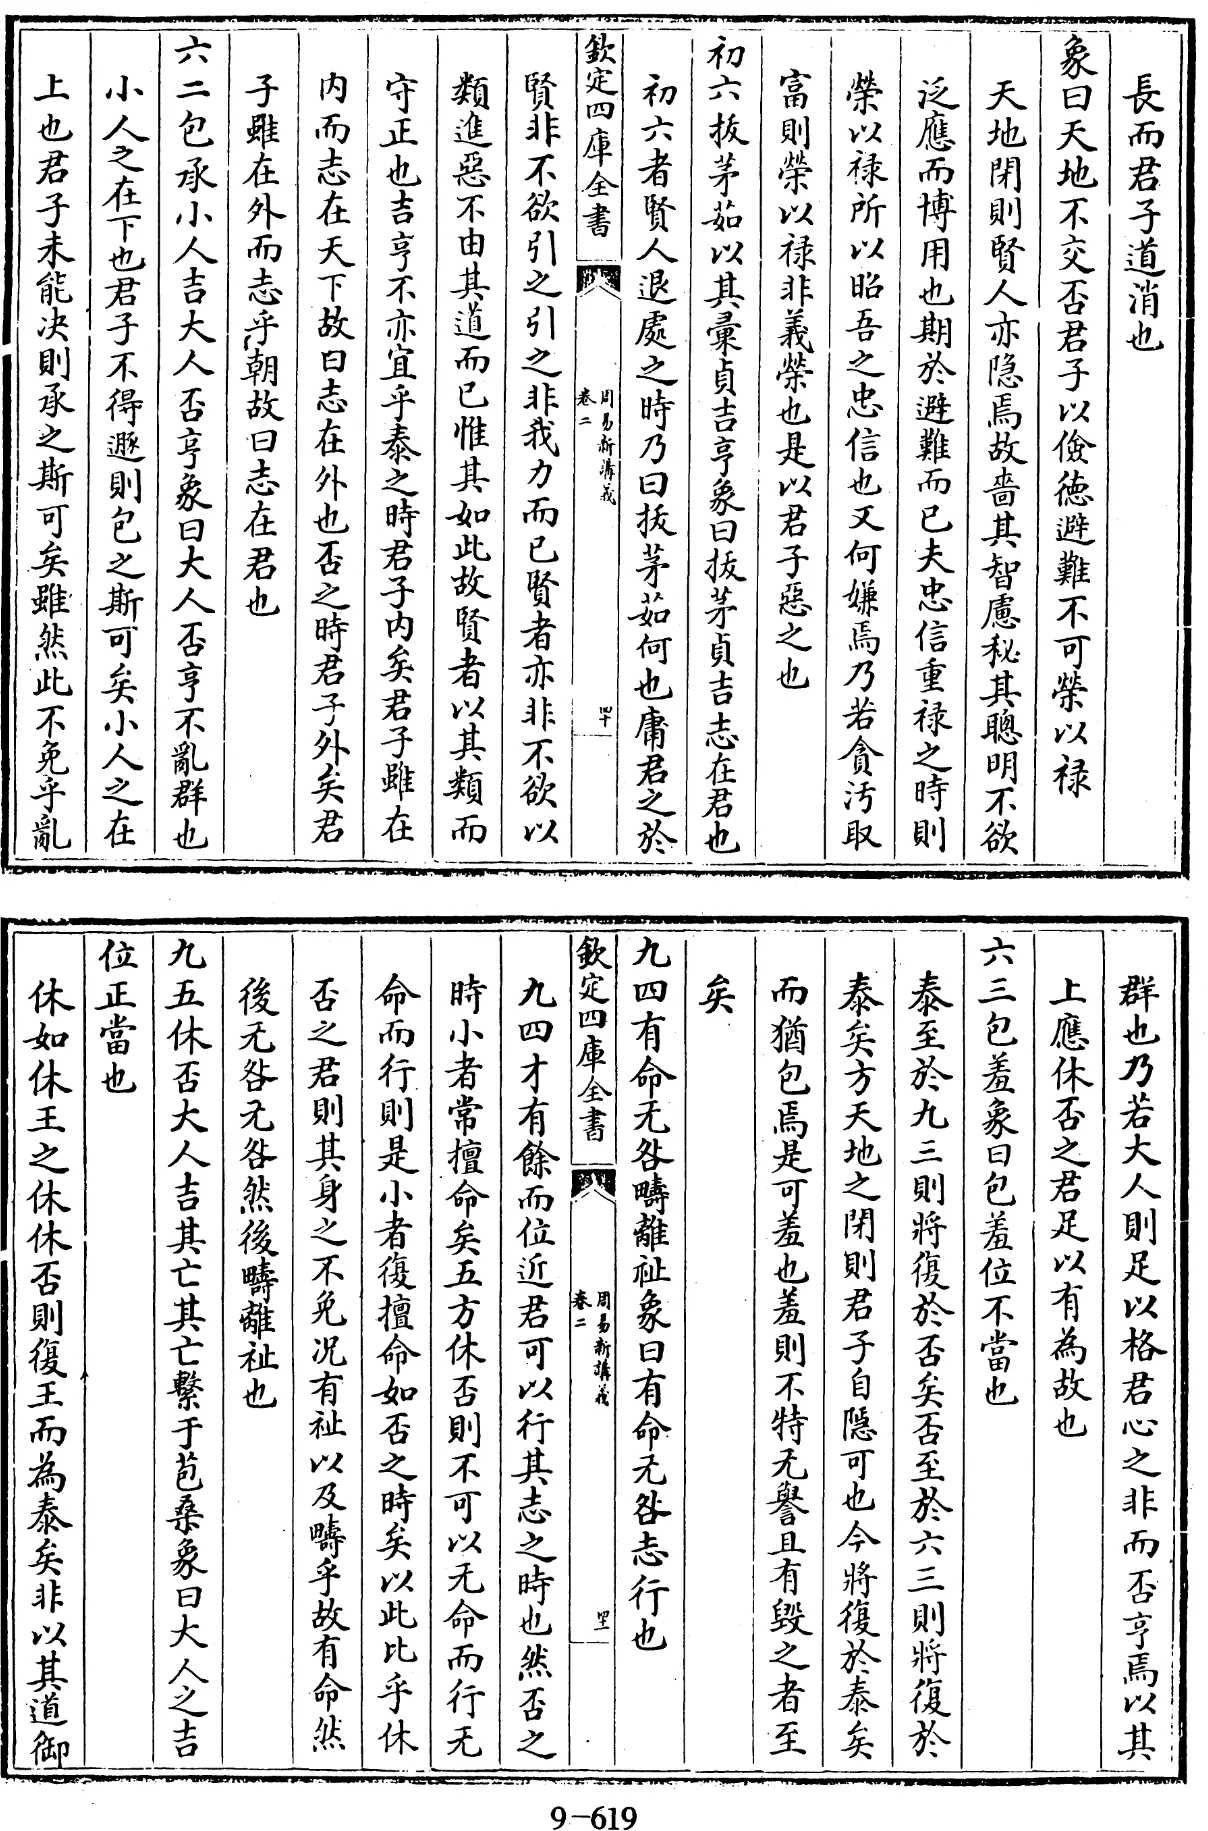 長而君子道消也
象曰天地不交否君子以儉德避難不可榮以禄
天地閉則賢人亦隐焉故嗇其智慮秘其聰明不欲
泛應而博用也期於避難而已夫忠信重禄之時則
榮以禄所以昭吾之忠信也又何嫌焉乃若貪汚取
富則榮以禄非義榮也是以君子惡之也
初六拔茅茹以其彚貞吉亨象曰拔茅貞吉志在君也
初六者賢人退處之時乃曰拔茅茹何也庸君之於
欽定四庫全書
周易新講義
卷二
四十
賢非不欲引之引之非我力而已賢者亦非不欲以
類進惡不由其道而已惟其如此故賢者以其類而
守正也吉亨不亦宜乎泰之時君子内矣君子雖在
内而志在天下故曰志在外也否之時君子外矣君
子雖在外而志乎朝故曰志在君也
六二包承小人吉大人否亨象曰大人否亨不亂群也
小人之在下也君子不得遯則包之斯可矣小人之在
上也君子未能决則承之斯可矣雖然此不免乎亂
群也乃若大人則足以格君心之非而否亨焉以其
上應休否之君足以有為故也
六三包羞象曰包羞位不當也
泰至於九三則將復於否矣否至於六三則將復於
泰矣方天地之閉則君子自隱可也今將復於泰矣
而猶包焉是可羞也羞則不特无譽且有毁之者至
矣
九四有命无咎疇離祉象曰有命无咎志行也
欽定四庫全書
周易新講義
卷二
四十一
九四才有餘而位近君可以行其志之時也然否之
時小者常擅命矣五方休否則不可以无命而行无
命而行則是小者復擅命如否之時矣以此比乎休
否之君則其身之不免况有祉以及疇乎故有命然
後无咎无咎然後疇離祉也
九五休否大人吉其亡其亡繫于苞桑象曰大人之吉
位正當也
休如休王之休休否則復王而為泰矣非以其道御
9-619